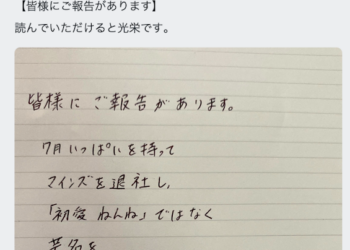 【皆様にご報告があります】
読んでいただけると光栄です。
皆様にご報告があります。
7月いっぱいを持って
マインズを退社し、
「初愛ねんね」ではなく
芸名を